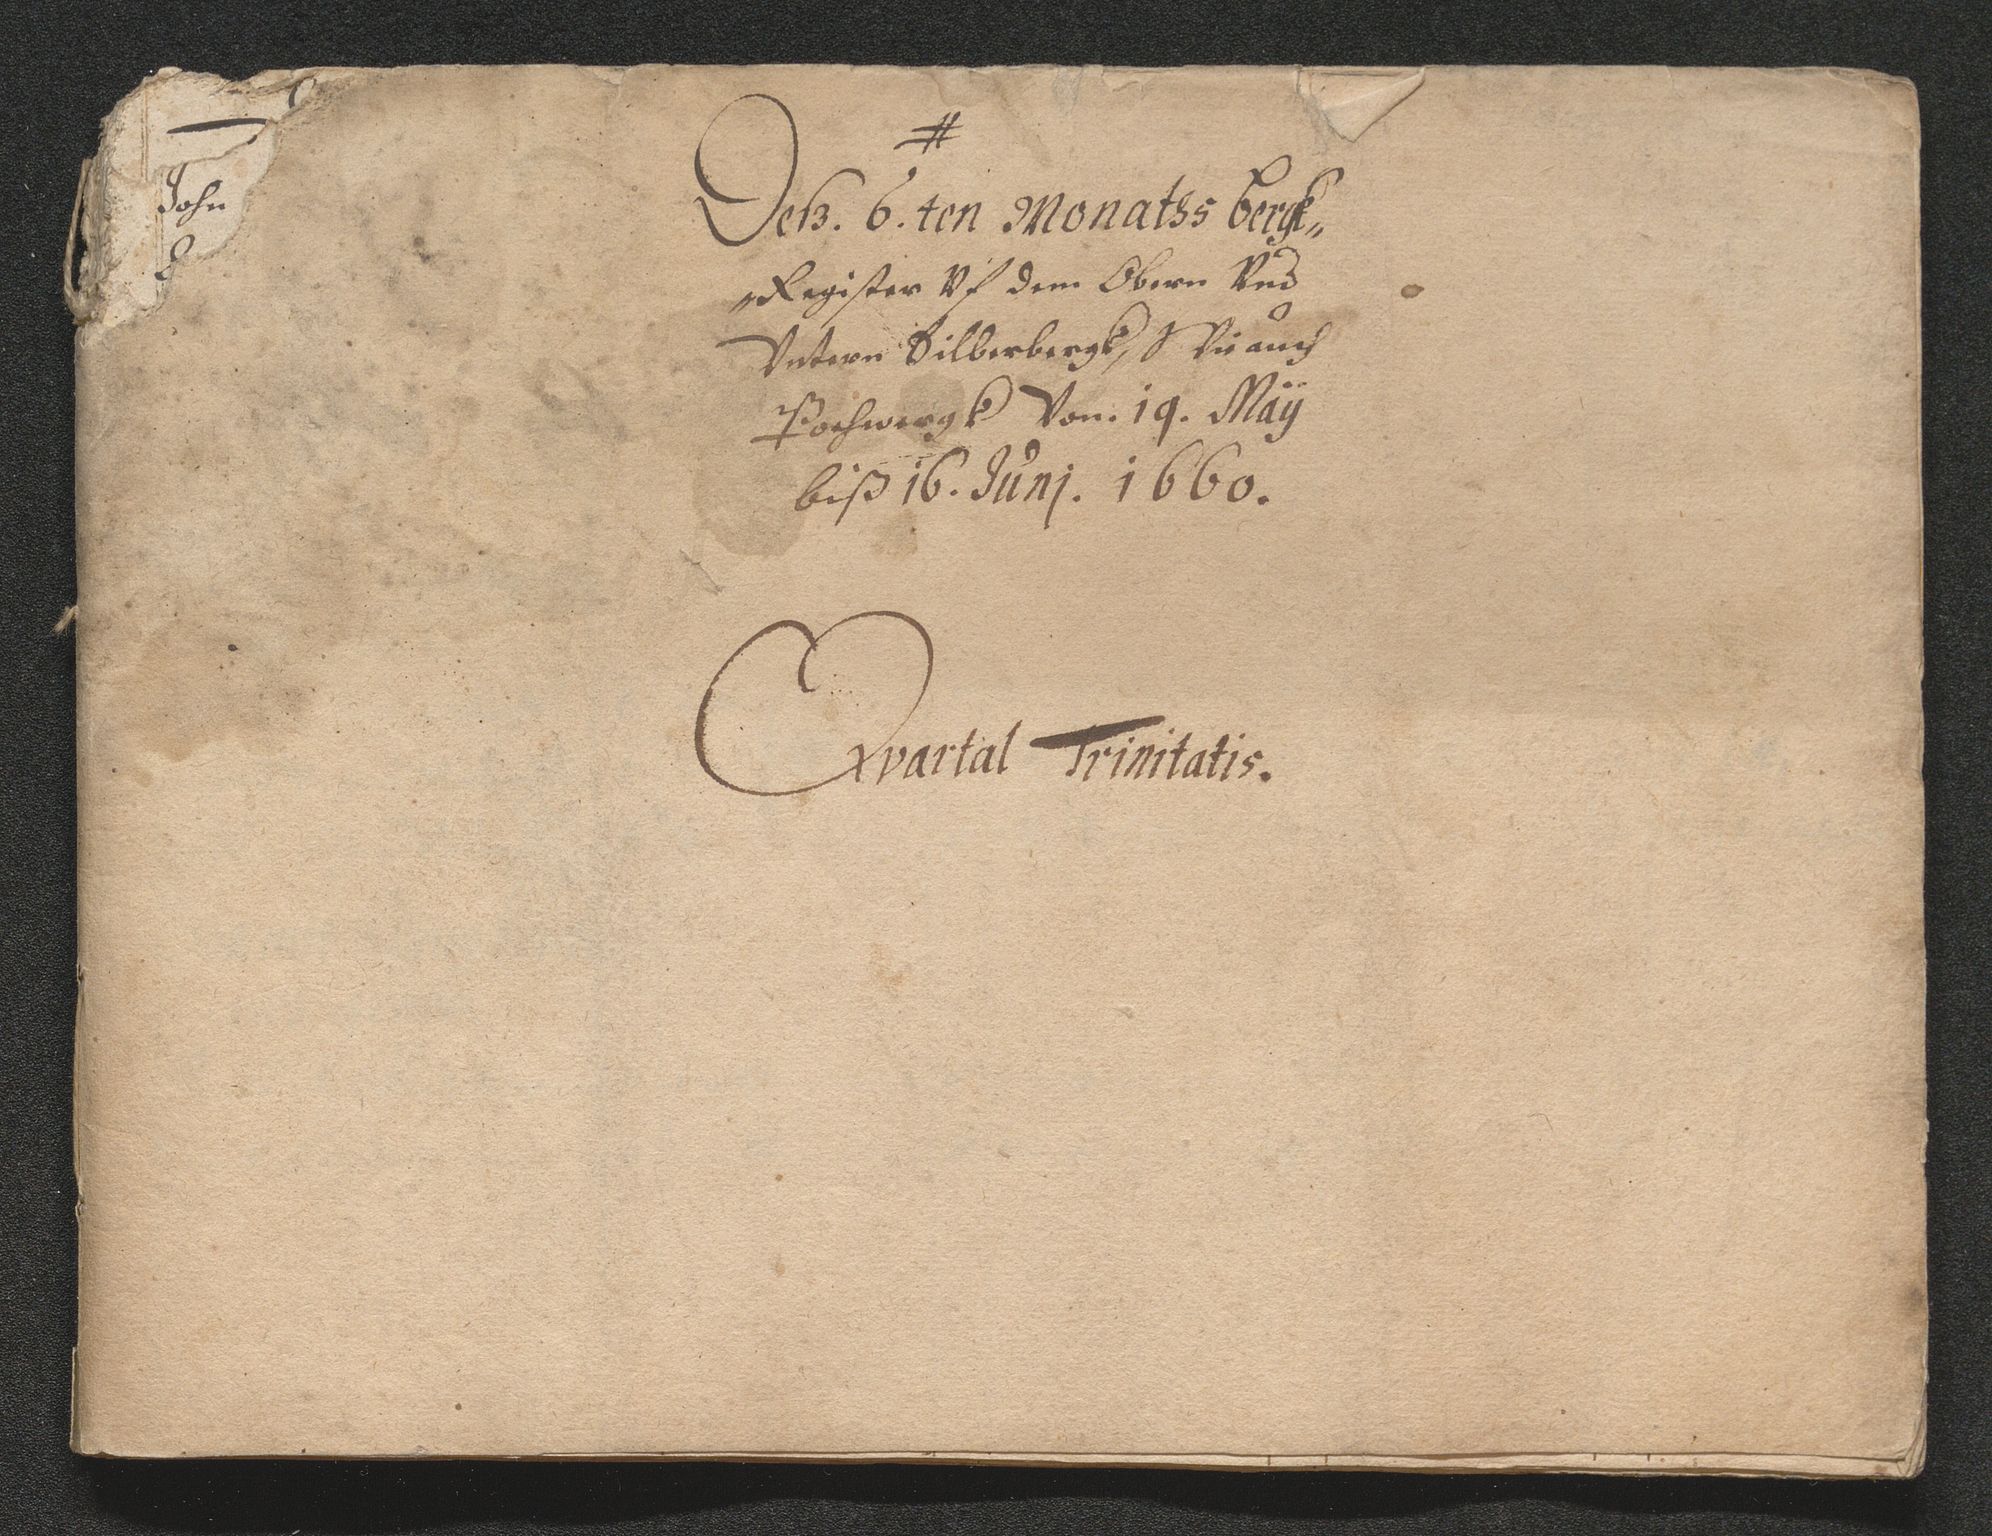 John
#
Deß. 6.ten Monathss bergk„
„Register Vf dem Obern Vnd
Vntern Silberbergk, Wie auch
Pochwergk Vom. 19. Maÿ
biß 16. Junj. 1660.
Qvartal Trinitatis.